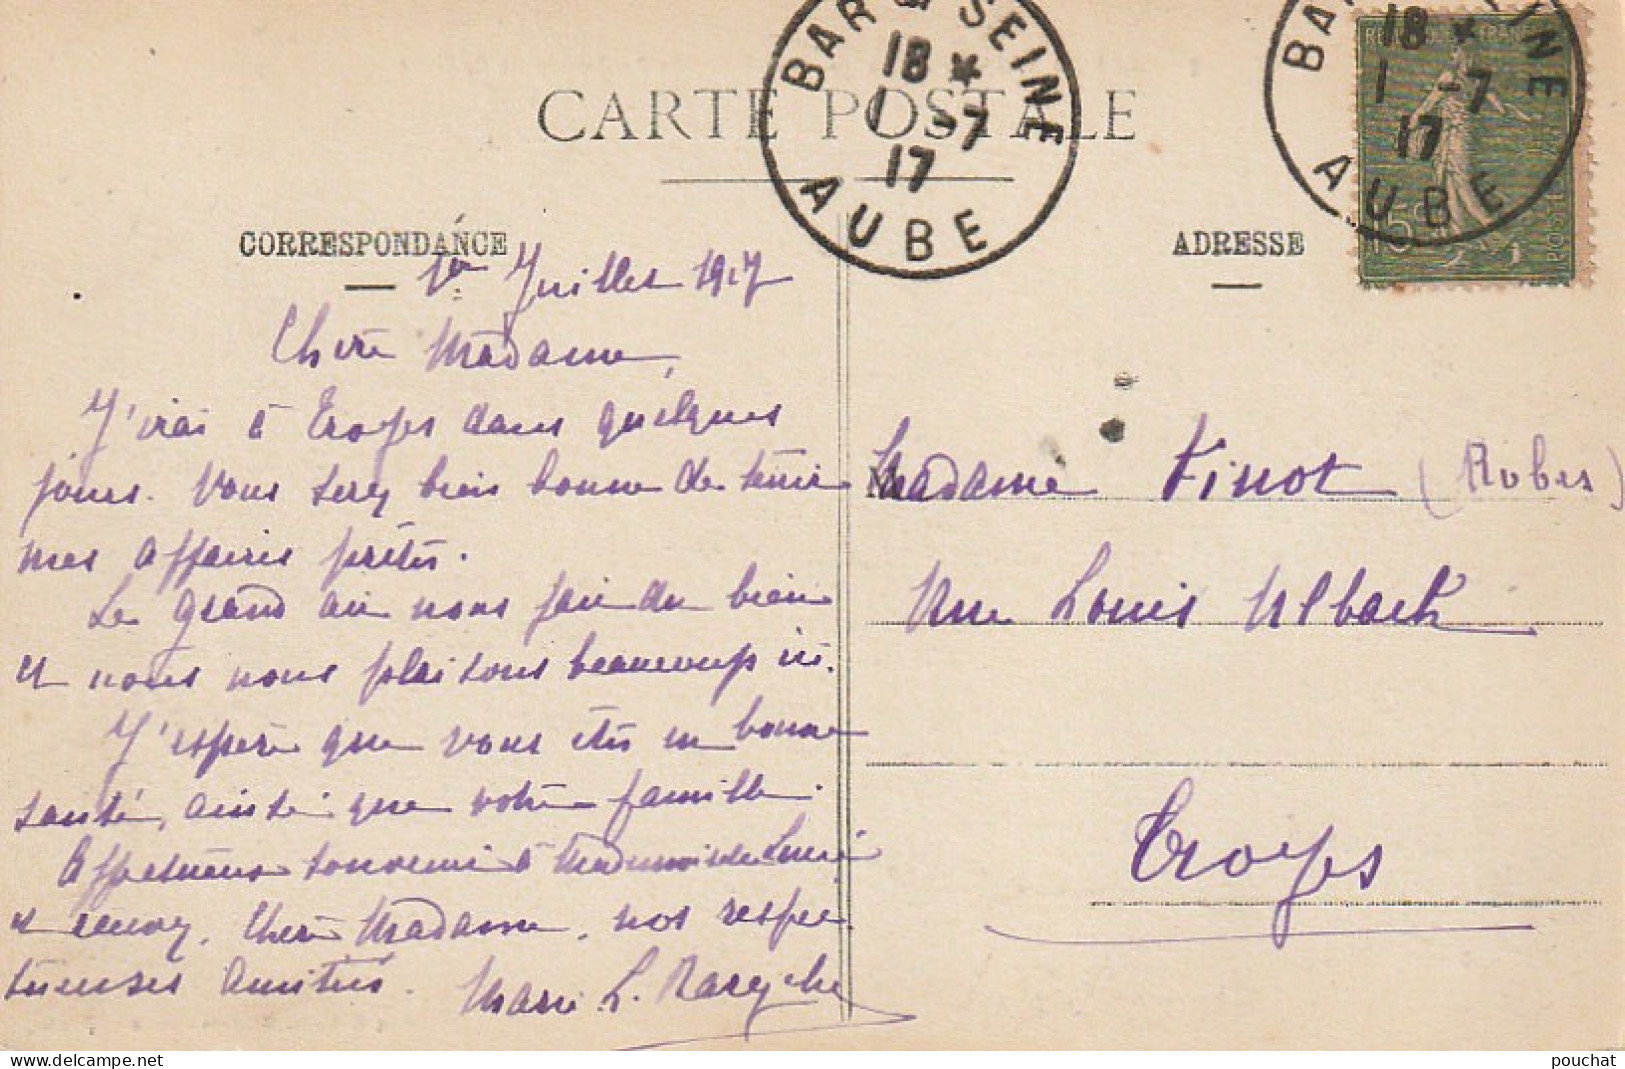 CARTE POSTALE
BAR S SEINE
18 *
1 -7
17
AUBE
BAR INE
18 *
1 -7
17
AUBE
REPUBLIQUE FRANC
15c
POSTE
CORRESPONDANCE
ADRESSE
1er Juillet 1917
Chère Madame,
J'irai à Troyes dans quelques
jours. Vous serez bien bonne de tenir
mes affaires prêtes.
Le grand air nous fait du bien
et nous nous plaisons beaucoup ici.
J'espère que vous êtes en bonne
santé, ainsi que votre famille.
Affectueux souvenir à Mademoiselle
et recevez, Chère Madame, nos respec
tueuses amitiés. Marie L.
Madame Finot (Robes)
Rue Louis Ulbach
Troyes
www.delcampe.net
pouchat